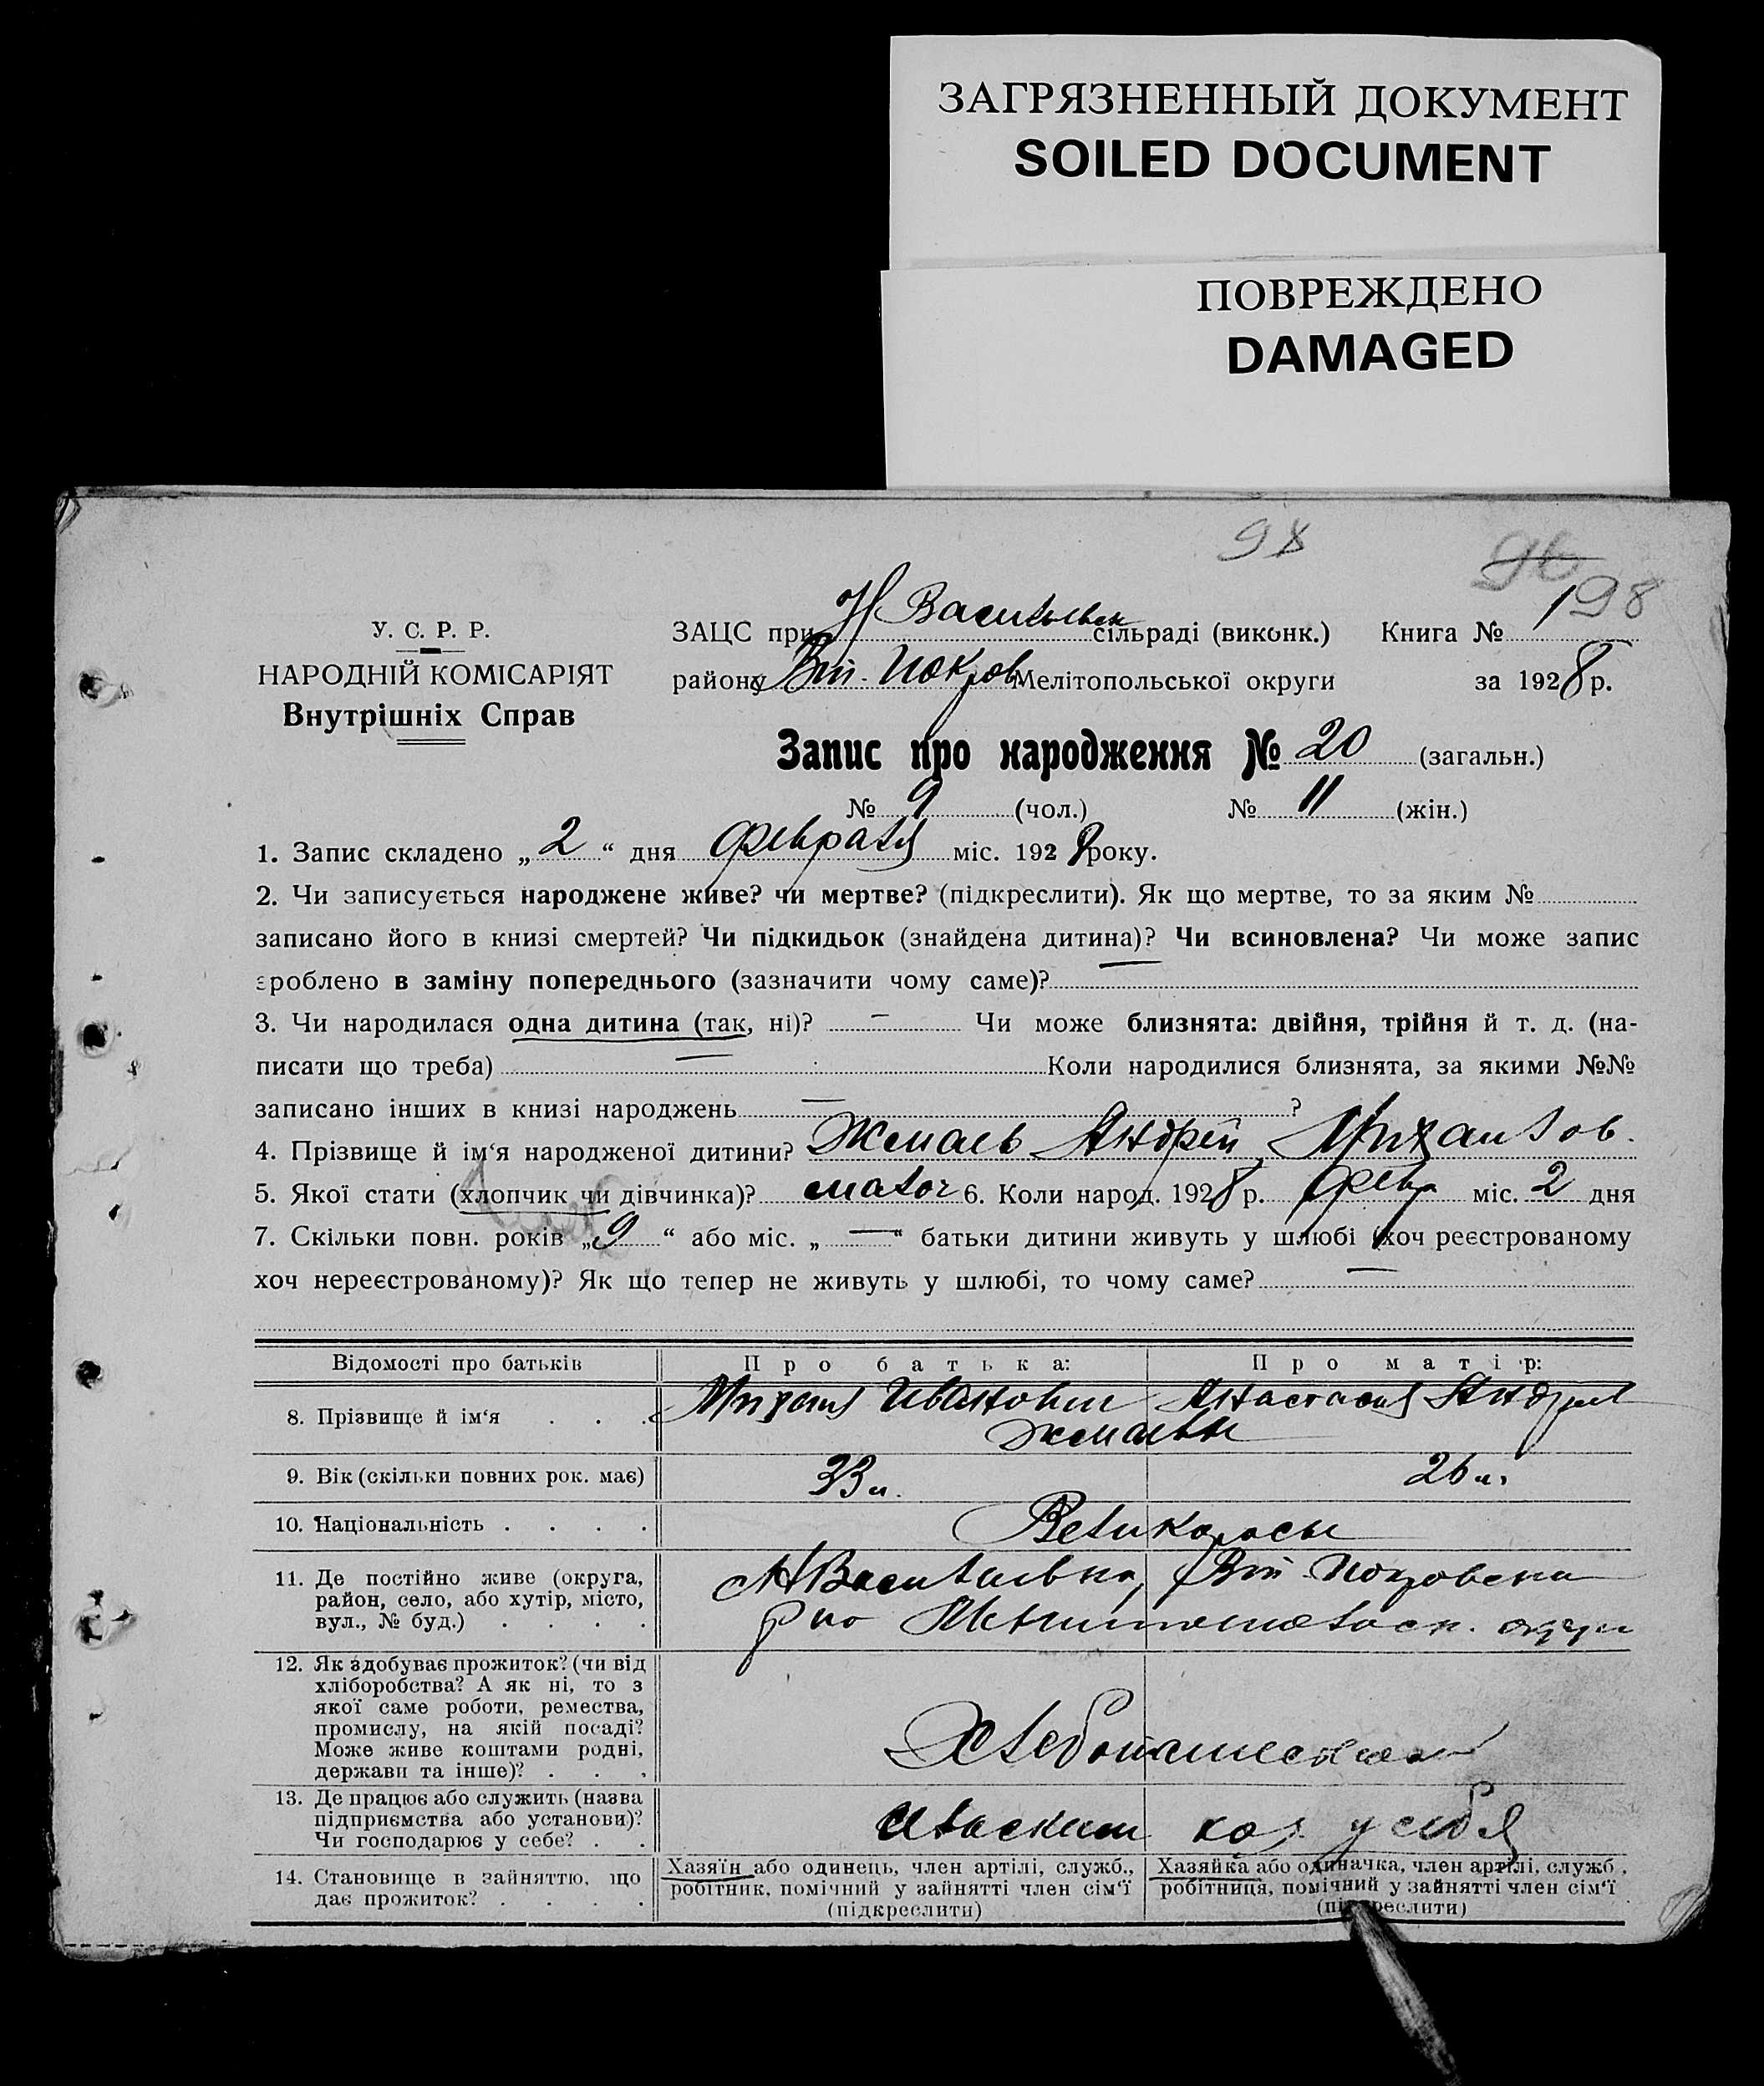 ЗАГРЯЗНЕННЫЙ ДОКУМЕНТ
SOILED DOCUMENT
ПОВРЕЖДЕНО
DAMAGED
98
96
198
У. С. Р. Р.
НАРОДНІЙ КОМІСАРІЯТ
Внутрішніх Справ
ЗАЦС при Н Васильевск сільраді (виконк.) Книга № 1
району Вел. Покров Мелітопольської округи за 1928 р.
Запис про народження № 20 (загальн.)
№ 9 (чол.) № 11 (жін.)
1. Запис складено „ 2 “ дня февраля міс. 1928 року.
2. Чи записується народжене живе? чи мертве? (підкреслити). Як що мертве, то за яким №
записано його в книзі смертей? Чи підкидьок (знайдена дитина)? Чи всиновлена? Чи може запис
зроблено в заміну попереднього (зазначити чому саме)? —
3. Чи народилася одна дитина (так, ні)? — Чи може близнята: двійня, трійня й т. д. (на-
писати що треба) — Коли народилися близнята, за якими №№
записано інших в книзі народжень — ?
4. Прізвище й ім‘я народженої дитини? Жмаль Андрей Михайлов.
5. Якої стати (хлопчик чи дівчинка)? 6. Коли народ. 1928 р. февр міс. 2 дня
7. Скільки повн. років „ 9 “ або міс. „ — “ батьки дитини живуть у шлюбі (хоч реєстрованому
хоч нереєстрованому)? Як що тепер не живуть у шлюбі, то чому саме? —
Відомості про батьків Про батька: Про матір:
8. Прізвище й ім‘я . . . Михаил Иванович Анастасия Андреев
9. Вік (скільки повних рок. має) 33 л. 26 л.
10. Національність . . . . Великоросы
11. Де постійно живе (округа, район, село, або хутір, місто, вул., № буд.) . . . . Н Васильевка, Покровск
р но Мелитопольск. округи
12. Як здобуває прожиток? (чи від хліборобства? А як ні, то з якої саме роботи, ремества, промислу, на якій посаді? Може живе коштами родні, держави та інше)? . . .
13. Де працює або служить (назва підприємства або установи)? Чи господарює у себе? . . у себя
14. Становище в зайняттю, що дає прожиток? . . . .
Хазяїн або одинець, член артілі, служб., робітник, помічний у зайнятті член сім‘ї (підкреслити)
Хазяйка або одиначка, член артілі, служб., робітниця, помічний у зайнятті член сім‘ї (підкреслити)